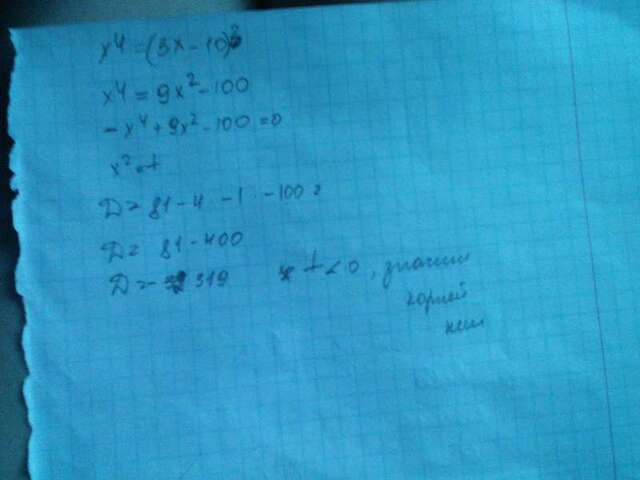 x⁴ = (3x - 10)²
x⁴ = 9x² - 100
-x⁴ + 9x² - 100 = 0
x² = t
D = 81 - 4 · -1 · -100 =
D = 81 - 400
D = - 319
t < 0, значит
корней
нет